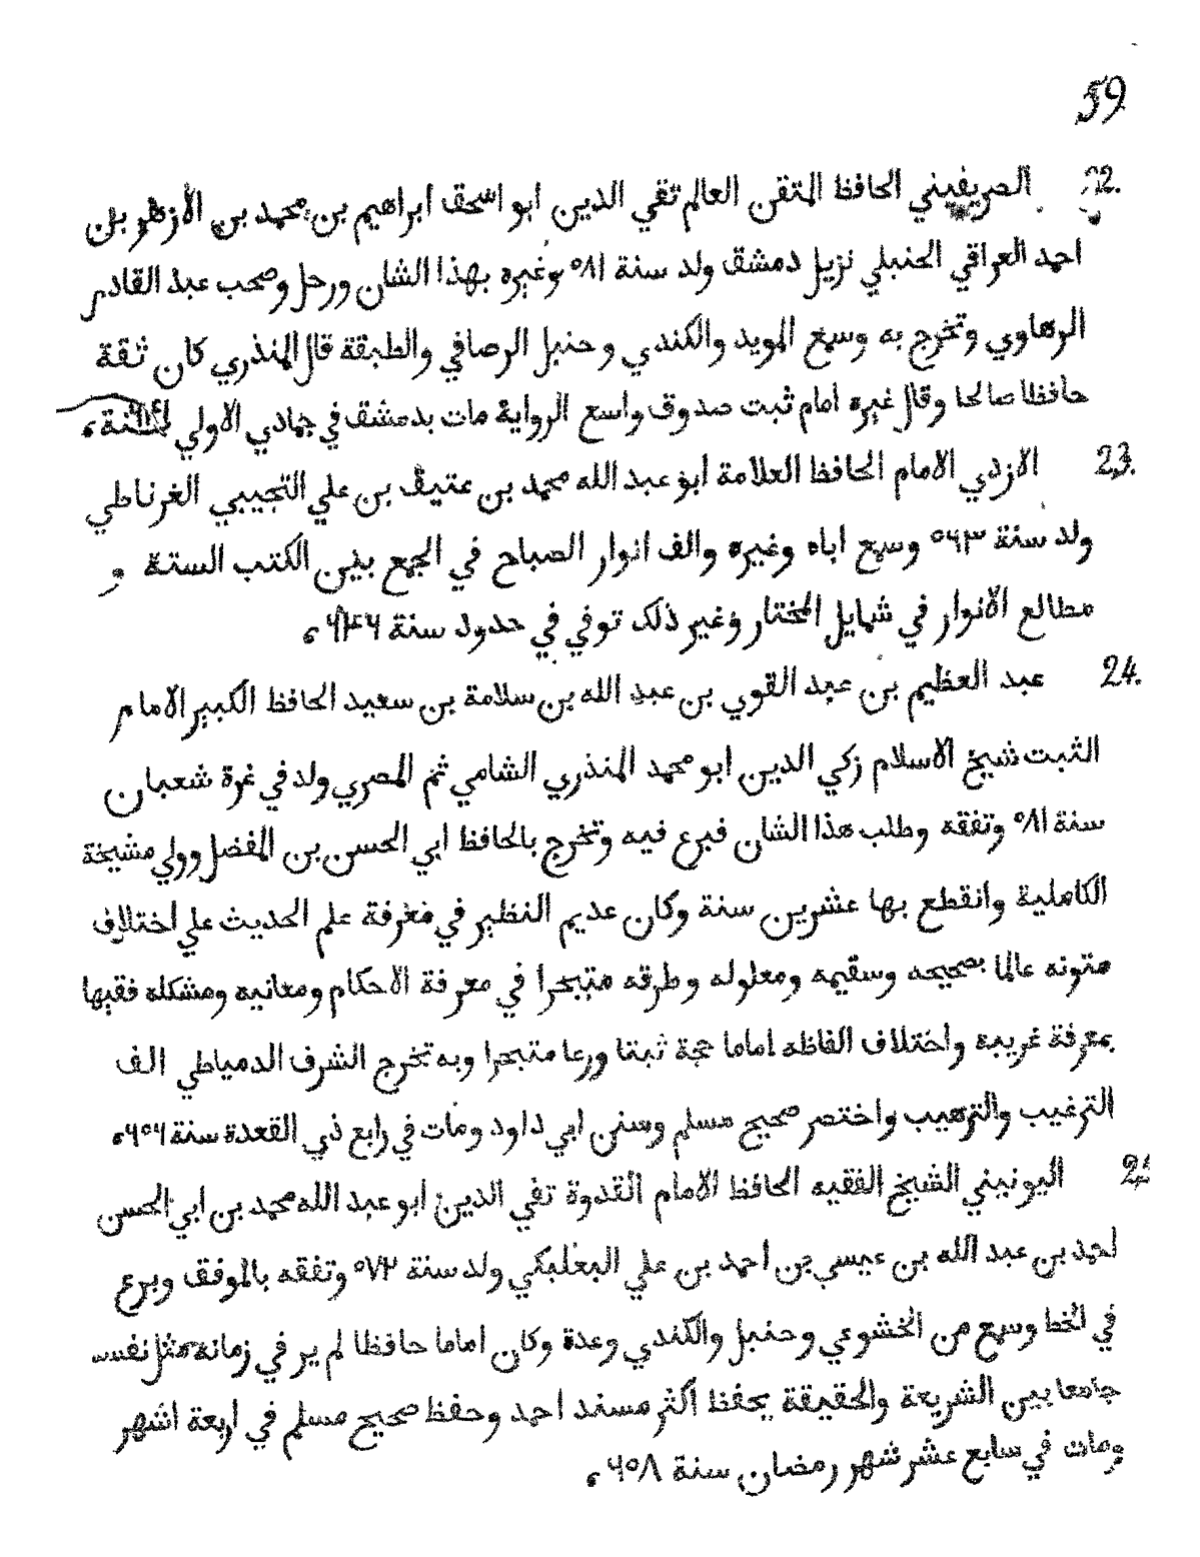 59
22. الصريفيني الحافظ المتقن العالم تقي الدين ابو اسحق ابراهيم بن محمد بن الأزهر بن
احمد العراقي الحنبلي نزيل دمشق ولد سنة ٥٨١ وغيره بهذا الشان ورحل وصحب عبد القادر
الرهاوي وتخرج به وسمع المويد والكندي وحنبل الرصافي والطبقة قال المنذري كان ثقة
حافظا صالحا وقال غيره امام ثبت صدوق واسع الرواية مات بدمشق في جمادي الاولي سنة
23. الازدي الامام الحافظ العلامة ابو عبد الله محمد بن عتيق بن علي التجيبي الغرناطي
ولد سنة ٥٦٣ وسمع اباه وغيره والف انوار الصباح في الجمع بين الكتب الستة و
مطالع الانوار في شمايل المختار وغير ذلك توفي في حدود سنة ٦٤٦ ،
24. عبد العظيم بن عبد القوي بن عبد الله بن سلامة بن سعيد الحافظ الكبير الامام
الثبت شيخ الاسلام زكي الدين ابو محمد المنذري الشامي ثم المصري ولد في غرة شعبان
سنة ٥٨١ وتفقه وطلب هذا الشان فبرع فيه وتخرج بالحافظ ابي الحسن بن المفضل وولي مشيخة
الكاملية وانقطع بها عشرين سنة وكان عديم النظير في معرفة علم الحديث علي اختلاف
متونه عالما بصحيحه وسقيمه ومعلوله وطرقه متبحرا في معرفة الاحكام ومعانيه ومشكله فقيها
بمعرفة غريبه واختلاف الفاظه اماما حجة ثبتا ورعا متبحرا وبه تخرج الشرف الدمياطي الف
الترغيب والترهيب واختصر صحيح مسلم وسنن ابي داود ومات في رابع ذي القعدة سنة ٦٥٦،
اليونيني الشيخ الفقيه الحافظ الامام القدوة تقي الدين ابو عبد الله محمد بن ابي الحسن
احمد بن عبد الله بن عيسي بن احمد بن علي البعلبكي ولد سنة ٥٧٢ وتفقه بالموفق وبرع
في الخط وسمع من الخشوعي وحنبل والكندي وعدة وكان اماما حافظا لم ير في زمانه مثل نفسه
جامعا بين الشريعة والحقيقة يحفظ اكثر مسند احمد وحفظ صحيح مسلم في اربعة اشهر
ومات في سابع عشر شهر رمضان سنة ٦٥٨ ،